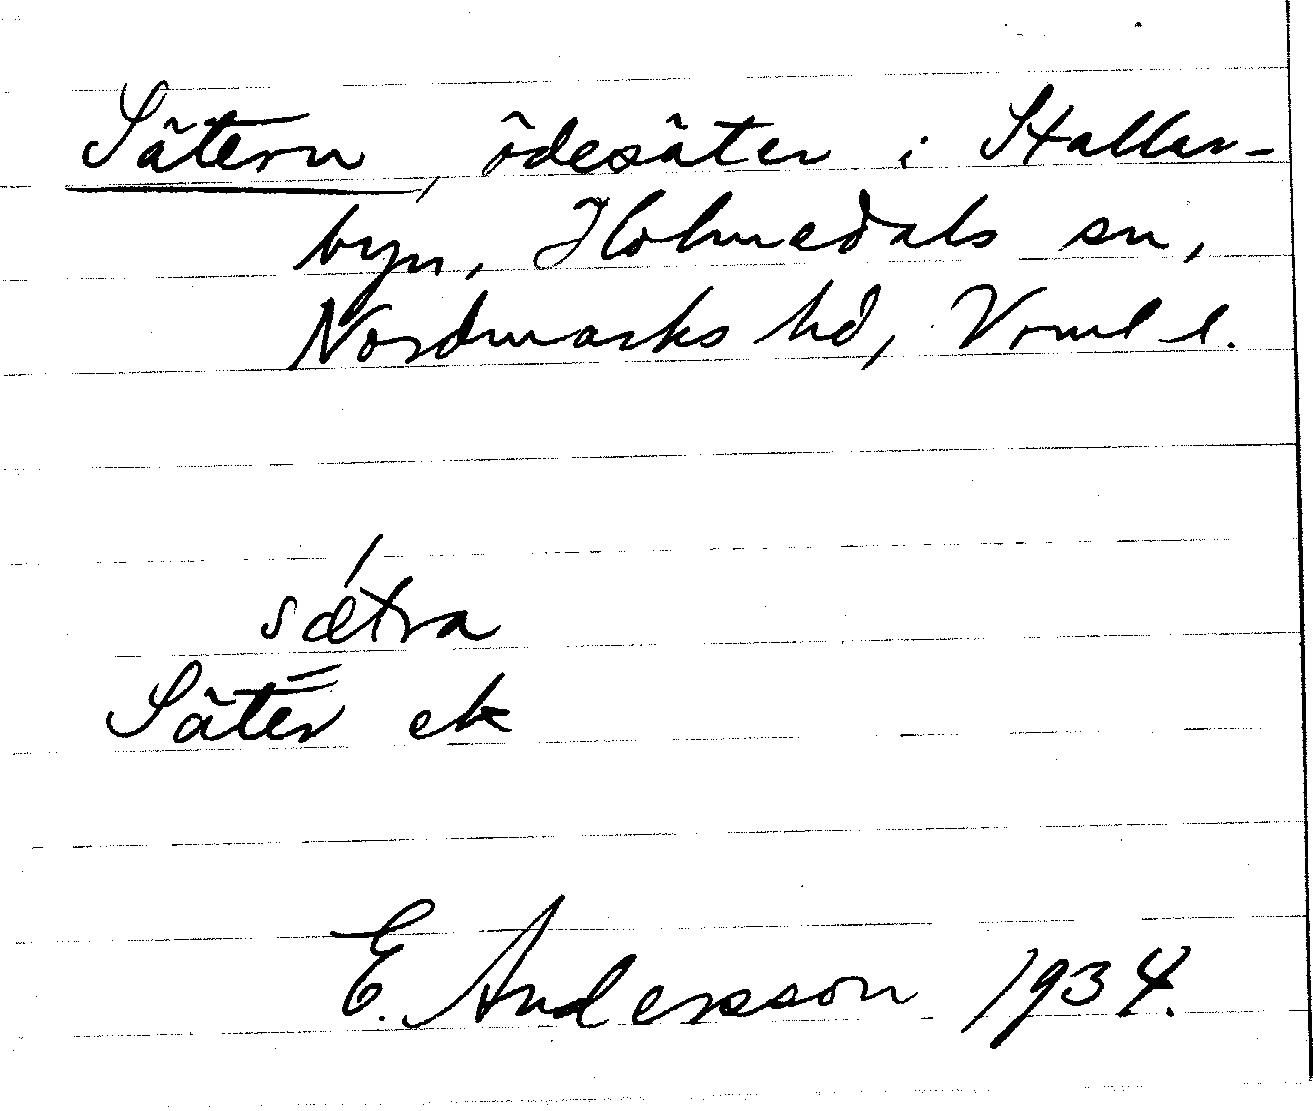 Sätern, ödesäter i Hallar-
byn, Holmedals sn,
Nordmarks hd, Vrml l.
sætra
Säter ek
E. Andersson 1934.